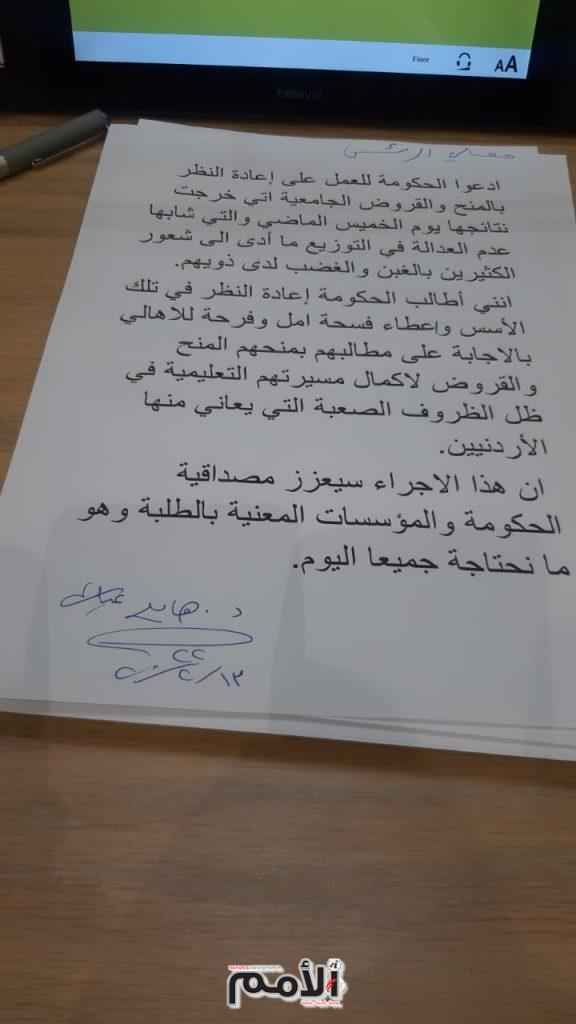 Floor
AA
televic
معالي الرئيس
ادعوا الحكومة للعمل على إعادة النظر
بالمنح والقروض الجامعية اتي خرجت
نتائجها يوم الخميس الماضي والتي شابها
عدم العدالة في التوزيع ما أدى الى شعور
الكثيرين بالغبن والغضب لدى ذويهم.
انني أطالب الحكومة إعادة النظر في تلك
الأسس وإعطاء فسحة امل وفرحة للاهالي
بالاجابة على مطالبهم بمنحهم المنح
والقروض لاكمال مسيرتهم التعليمية في
ظل الظروف الصعبة التي يعاني منها
الأردنيين.
ان هذا الاجراء سيعزز مصداقية
الحكومة والمؤسسات المعنية بالطلبة وهو
ما نحتاجة جميعا اليوم.
د. هايل
NATION'S NEWSPAPER
الأمم